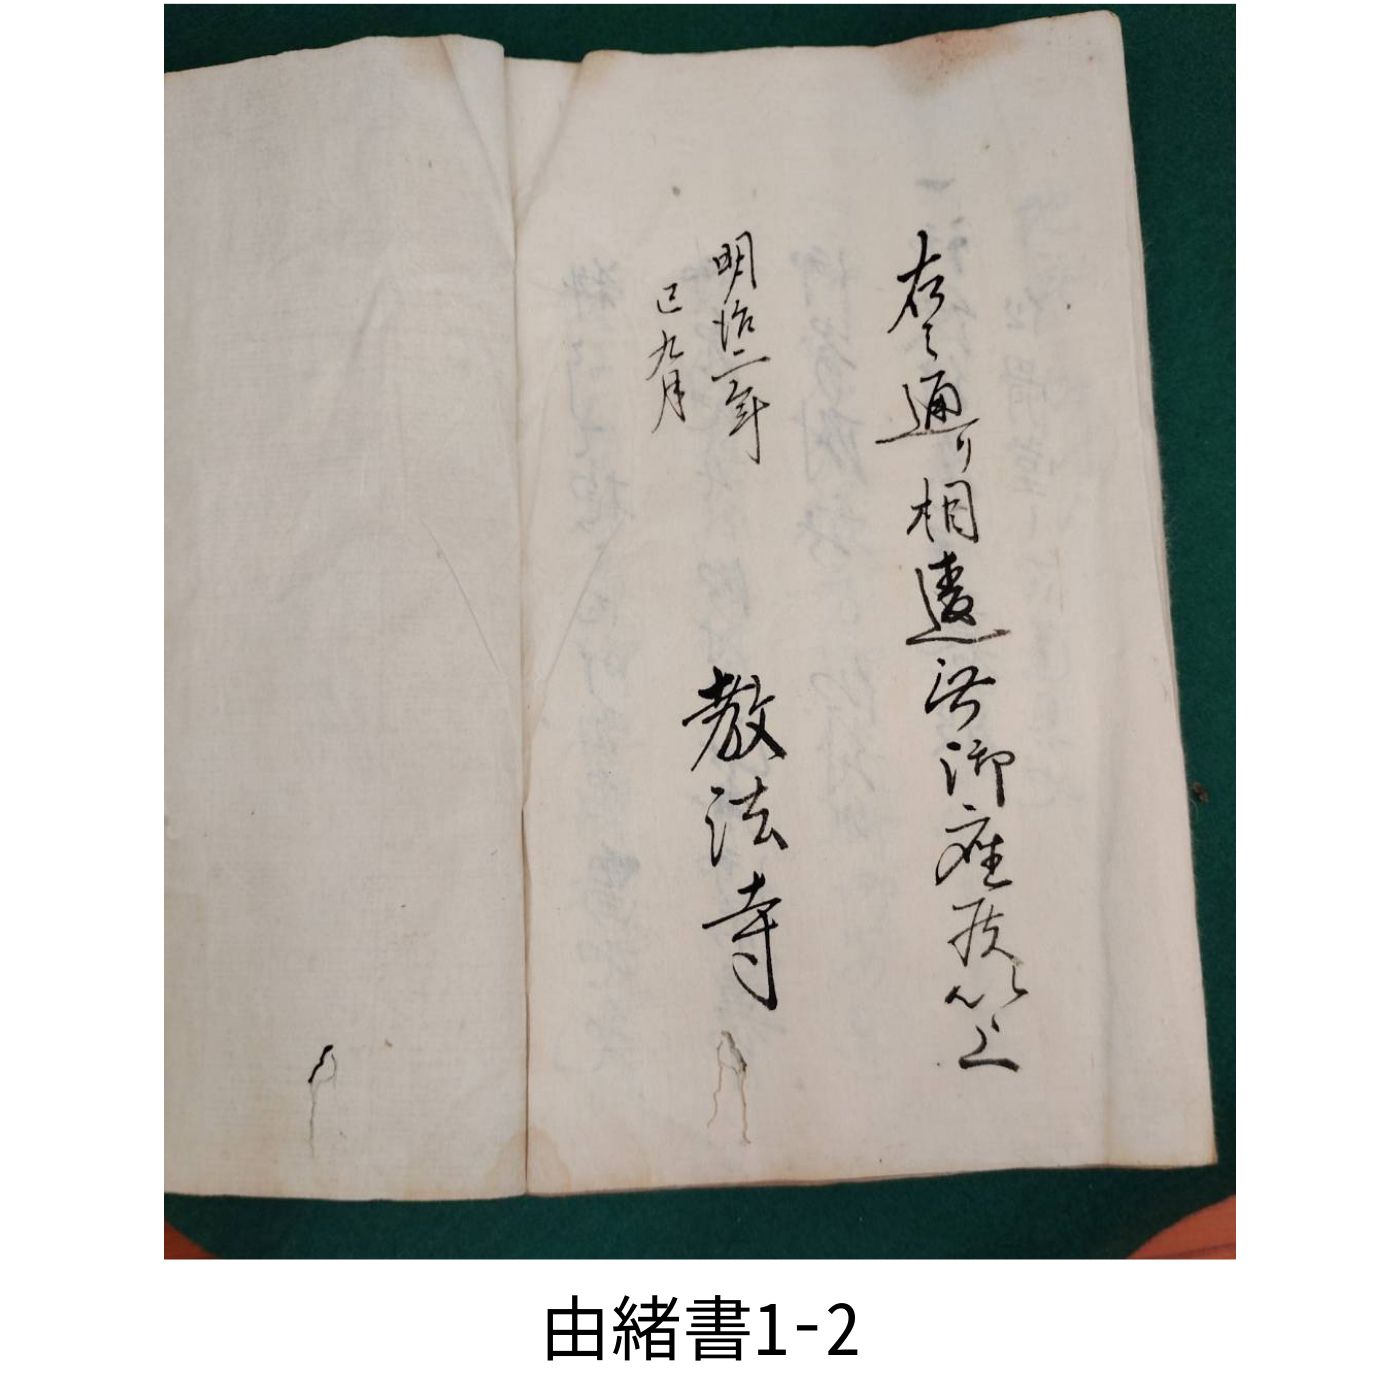 右之通り相違無御座候以上
明治二年
巳九月
教法寺
由緒書1-2